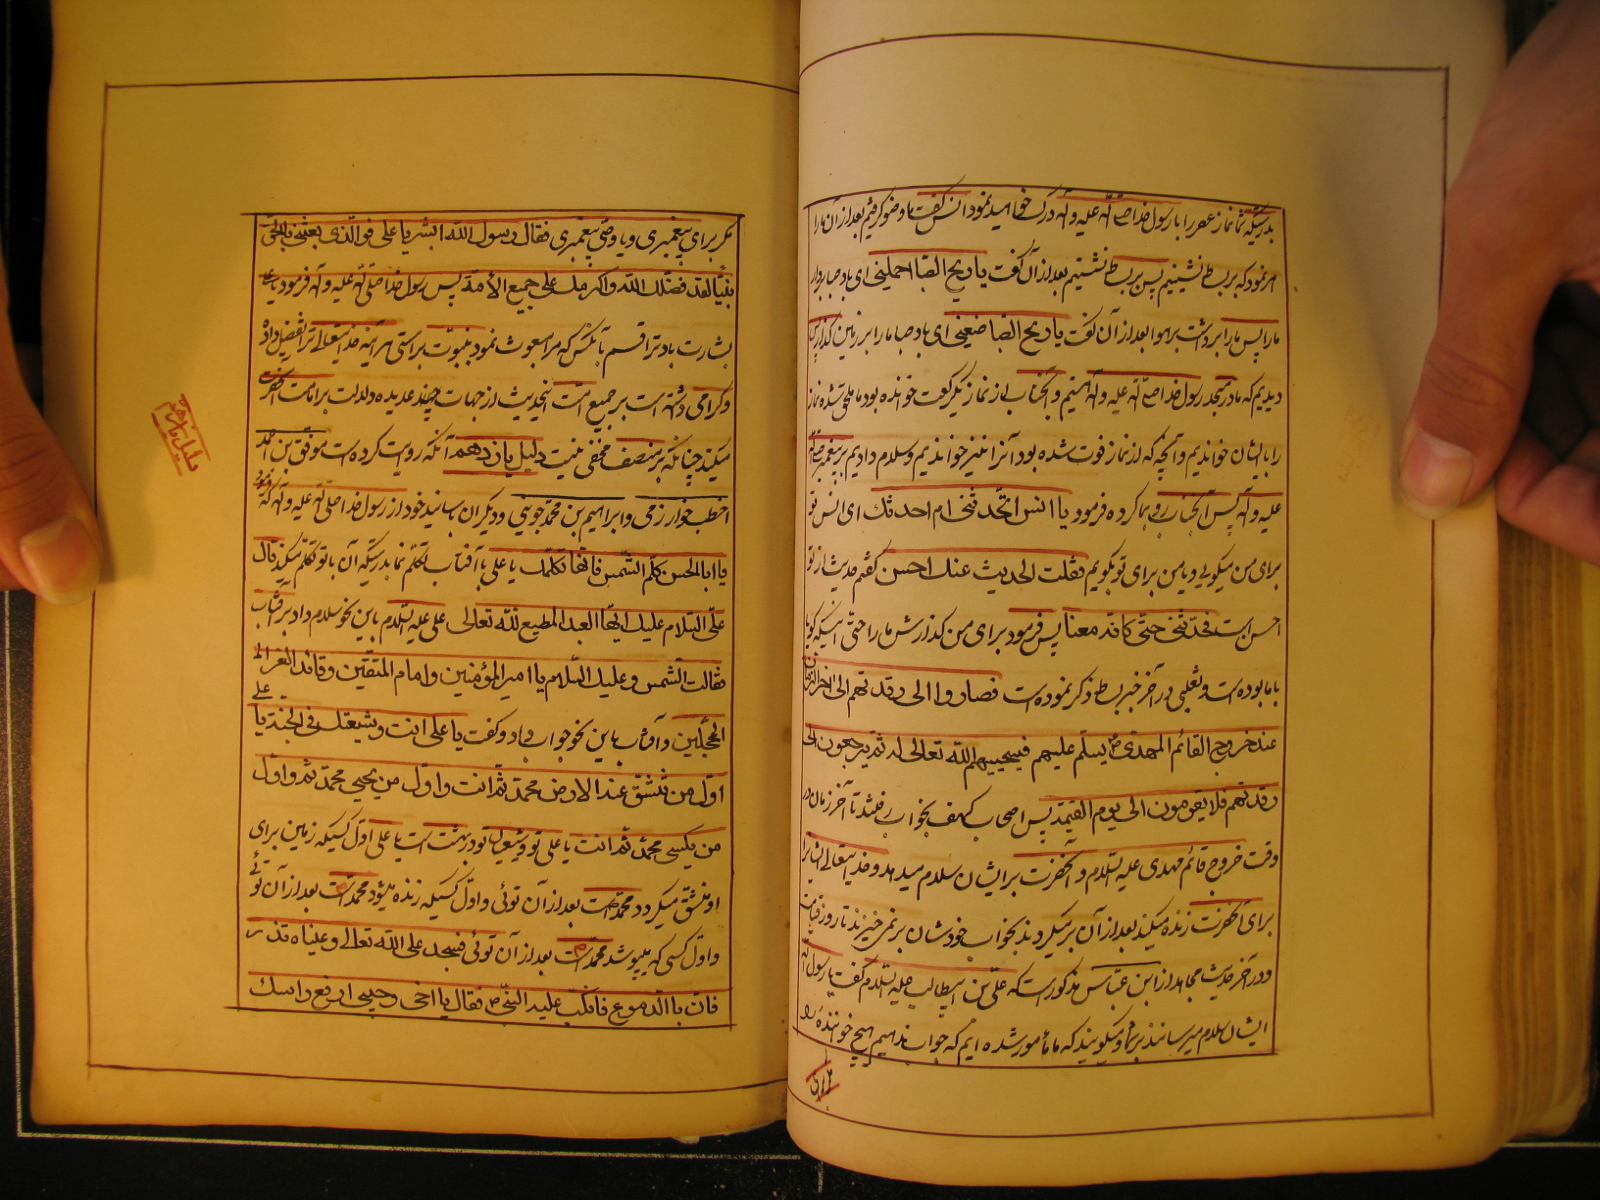 بدرستیکه شما نماز عصر را با رسول خدا صلی الله علیه و آله درک خواهید نمود انس گفت ما وضو گرفتیم بعد از آن ما را
امر نمود که بر بساط بنشینیم پس بر بساط نشستیم بعد از آن گفت یا ریح الصبا احملینی ای باد صبا بردار
ما را پس ما را برداشت بر هوا بعد از آن گفت یا ریح الصبا ضعینی ای باد صبا ما را بر زمین گذار پس
دیدیم که ما در مسجد رسول خدا صلی الله علیه و آله هستیم و آنجناب از نماز یک رکعت خوانده بود ما ملحق شده نماز
را با ایشان خواندیم و آنچه که از نماز فوت شده بود آنرا نیز خواندیم و سلام دادیم بر پیغمبر صلی الله
علیه و آله پس آنجناب رو بما کرده فرمود یا انس اتحدثنی ام احدثک ای انس تو
برای من میگویی و یا من برای تو بگویم فقلت الحدیث عنک احسن گفتم حدیث از تو
احسن است فحدثنی حتی کانه معنا پس فرمود برای من گذارش ما را حتی اینکه گویا
با ما بوده است و ثعلبی در آخر خبر بساط ذکر نموده است فصاروا الی رقدتهم الی آخر الزمان
عند خروج القائم المهدی ع یسلم علیهم فیحییهم الله تعالی له ثم یرجعون الی
رقدتهم فلا یقومون الی یوم القیمة پس اصحاب کهف بخواب رفتند تا آخر زمان در
وقت خروج قائم مهدی علیه السلام و آنحضرت بر ایشان سلام میدهد و خدایتعالی ایشانرا
برای آنحضرت زنده میکند بعد از آن برمیگردند بخواب خودشان بر نمی خیزند تا روز قیامت
و در آخر حدیث مجاهد از ابن عباس مذکور است که علی بن ابیطالب علیه السلام گفت یا رسول الله
ایشان سلام میرسانند بر شما و میگویند که ما مأمور شده ایم که جواب ندهیم هیچ خواننده را
مگر برای
مگر برای پیغمبری و یا وصی پیغمبری فقال رسول الله ابشر یا علی فوالذی بعثنی بالحق
نبیا لقد فضلک الله و اکرمک علی جمیع الامة پس رسول خدا صلی الله علیه و آله فرمود یا علی
بشارت باد ترا قسم بآنکس که مرا مبعوث نمود بنبوت براستی هر آینه خدایتعالی ترا تفضیل داده
و گرامی داشته است بر جمیع امت اینحدیث از جهات چند عدیده دلالت بر امامت آنحضرت
میکند چنانکه بر منصف مخفی نیست دلیل یازدهم آنکه روایت کرده است موفق بن احمد
اخطب خوارزمی و ابراهیم بن محمد جوینی و دیگران باسانید خود از رسول خدا صلی الله علیه و آله که فرمود
یا ابا الحسن کلم الشمس فانها تکلمک یا علی با آفتاب تکلم نما بدرستیکه آن با تو تکلم میکند قال
علی السلام علیک ایها العبد المطیع لله تعالی علی علیه السلام باین نحو سلام داد بر آفتاب
فقالت الشمس و علیک السلام یا امیر المؤمنین و امام المتقین و قائد الغر
المحجلین و آفتاب باین نحو جواب داد و گفت یا علی انت و شیعتک فی الجنة یا علی
اول من تنشق عنه الارض محمد ثم انت و اول من یحیی محمد ثم و اول
من یکسی محمد ثم انت یا علی تو و شیعیان تو در بهشت است یا علی اول کسیکه زمین برای
او منشق میگردد محمد است بعد از آن توئی و اول کسیکه زنده میشود محمد است بعد از آن توئی
و اول کسی که میپوشد محمد است بعد از آن توئی فسجد علی الله تعالی و عیناه تذر
فان بالدموع فانکب علیه النبی ص فقال یا اخی و حبیبی ارفع راسک
دلیل یازدهم